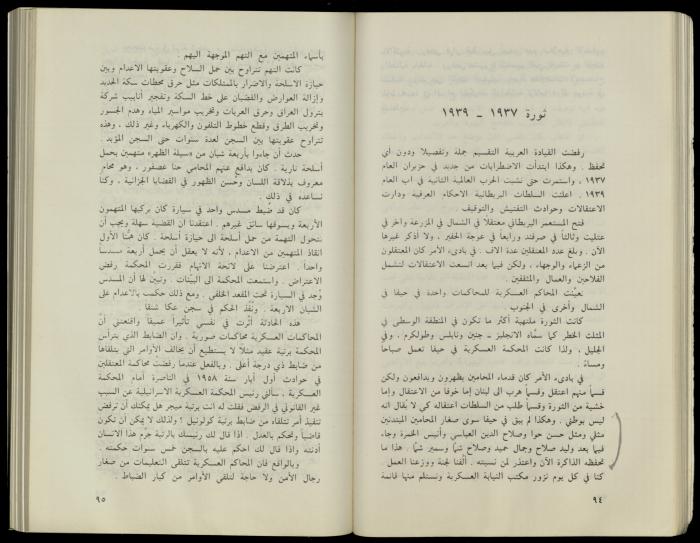 ثورة ١٩٣٧ ـ ١٩٣٩
رفضت القيادة العربية التقسيم جملة وتفصيلا ودون أي
تحفظ . وهكذا ابتدأت الاضطرابات من جديد في حزيران العام
١٩٣٧ ، واستمرت حتى نشبت الحرب العالمية الثانية في اب العام
١٩٣٩ . اعلنت السلطات البريطانية الاحكام العرفية ودارت
الاعتقالات وحوادث التفتيش والتوقيف .
فتح المستعمر البريطاني معتقلًا في الشمال في المزرعة وآخر في
عتليت وثالثاً في صرفند ورابعاً في عوجة الحفير ، ولا أذكر غيرها
الآن . وبلغ عدد المعتقلين عدة الاف . في بادىء الأمر كان المعتقلون
من الزعماء والوجهاء ، ولكن فيما بعد اتسعت الاعتقالات لتشمل
الفلاحين والعمال والمثقفين .
تعينت المحاكم العسكرية للمحاكمات واحدة في حيفا في
الشمال وأخرى في الجنوب .
كانت الثورة ملتهبة أكثر ما تكون في المنطقة الوسطى في
المثلث الخطر كما سمّاه الانجليز ـ جنين ونابلس وطولكرم . وفي
الجليل ، ولذا كانت المحكمة العسكرية في حيفا تعمل صباحاً
ومساءً .
في بادىء الأمر كان قدماء المحامين يظهرون ويدافعون ولكن
قسماً منهم اعتقل وقسماً هرب الى لبنان إما خوفا من الاعتقال وإما
خشية من الثورة وقسماً طلب من السلطات اعتقاله كي لا يقال انه
ليس بوطني . وهكذا لم يبق في حيفا سوى صغار المحامين المبتدئين
مثلي ومثل حسن حوا وصلاح الدين العباسي وأنيس الخمرة وجاء
فيما بعد وليد صلاح وجمال حميد وصلاح شما وسمير شما . هذا ما
تحفظه الذاكرة الآن واعتذر لمن نسيته . ألّفنا لجنة ووزعنا العمل .
كنا في كل يوم نزور مكتب النيابة العسكرية ونستلم منها قائمة
٩٤
بأسماء المتهمين مع التهم الموجهة اليهم .
كانت التهم تتراوح بين حمل السلاح وعقوبتها الاعدام وبين
حيازة الاسلحة والاضرار بالممتلكات مثل حرق محطات سكة الحديد
وإزالة العوارض والقضبان على خط السكة وتفجير أنابيب شركة
بترول العراق وحرق العربات وتخريب مواسير المياه وهدم الجسور
وتخريب الطرق وقطع خطوط التلفون والكهرباء وغير ذلك ، وهذه
تتراوح عقوبتها بين السجن لعدة سنوات حتى السجن المؤبد .
حدث أن جاءوا بأربعة شبان من «سيلة الظهر» متهمين بحمل
أسلحة نارية . كان يدافع عنهم المحامي حنا عصفور ، وهو محام
معروف بذلاقة اللسان وحسن الظهور في القضايا الجزائية ، وكنا
نساعده في ذلك .
كان قد ضُبط مسدس واحد في سيارة كان يركبها المتهمون
الأربعة ويسوقها سائق غيرهم . اعتقدنا أن القضية سهلة ويجب أن
نتحول التهمة من حمل أسلحة الى حيازة أسلحة . كان همنا الأول
انقاذ المتهمين من الاعدام ، لأنه لا يعقل أن يحمل أربعة مسدساً
واحداً . اعترضنا على لائحة الاتهام فقررت المحكمة رفض
الاعتراض . واستمعت المحكمة الى البيّنات . وتبيّن لها أن المسدس
وُجد في السيارة تحت المقعد الخلفي . ومع ذلك حكمت بالاعدام على
الشبان الاربعة . ونُفّذ الحكم في سجن عكا شنقا .
هذه الحادثة أثّرت في نفسي تأثيراً عميقاً واقنعتني أنّ
المحاكمات العسكرية محاكمات صورية . وان الضابط الذي يترأس
المحكمة برتبة عقيد مثلًا لا يستطيع أن يخالف الأوامر التي يتلقاها
من ضابط ذي درجة أعلى . وبالفعل عندما رفضت محاكمة المعتقلين
في حوادث أول أيار سنة ١٩٥٨ في الناصرة أمام المحكمة
العسكرية ، سألني رئيس المحكمة العسكرية الاسرائيلية عن السبب
غير القانوني في الرفض فقلت له انت برتبة ميجر هل يمكنك أن ترفض
تنفيذ أمر تتلقاه من ضابط برتبة كولونيل ؟ ولذلك لا يمكن أن تكون
قاضياً وتحكم بالعدل . اذا قال لك رئيسك بالرتبة جرّم هذا الانسان
أدنته واذا قال لك احكم عليه بالسجن خمس سنوات حكمته .
وبالواقع فان المحاكم العسكرية تتلقى التعليمات من صغار
رجال الأمن ولا حاجة لتلقي الأوامر من كبار الضباط .
٩٥